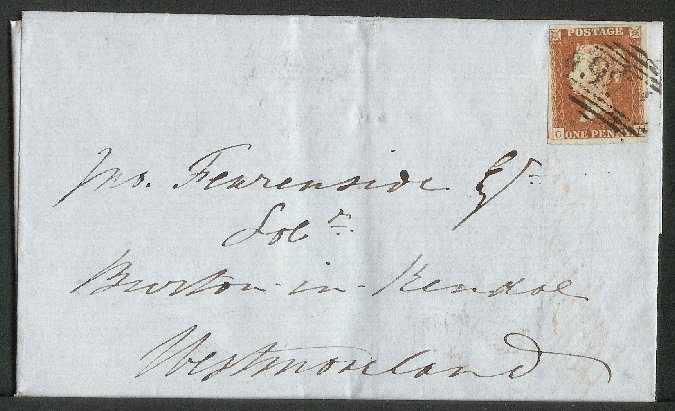 POSTAGE
ONE PENNY
Jno. Fearenside Esqr.
Solr.
Burton-in-Kendal
Westmorland